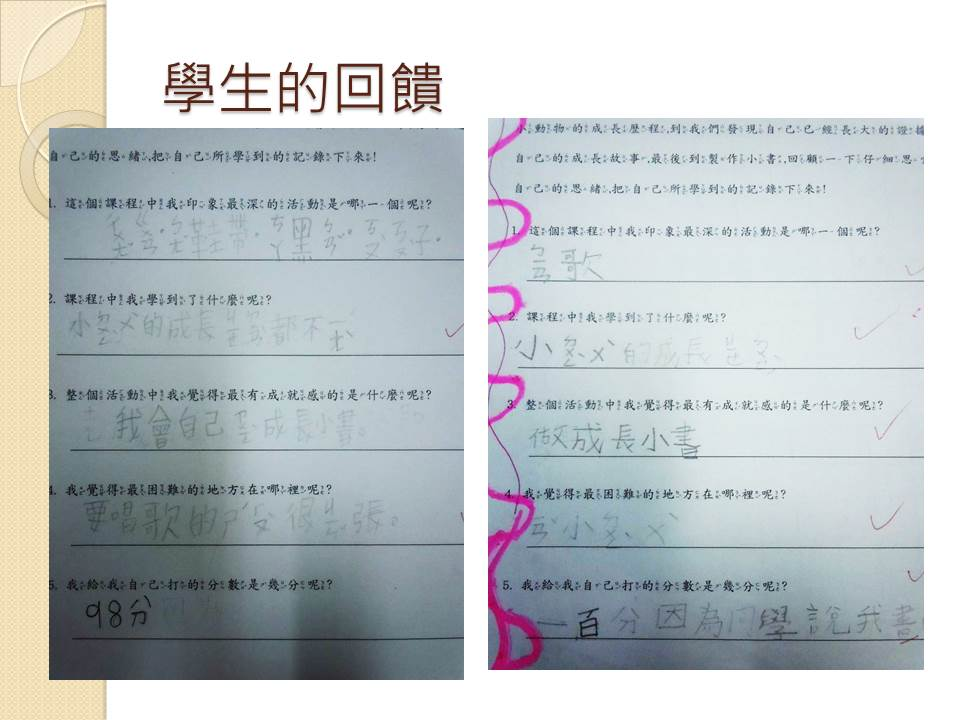 學生的回饋
自己的思緒,把自己所學到的記錄下來!
1. 這個課程中我印象最深的活動是哪一個呢?
鞋帶
2. 課程中我學到了什麼呢?
的成長 都不
3. 整個活動中我覺得最有成就感的是什麼呢?
我會自己 成長小書。
4. 我覺得最困難的地方在哪裡呢?
要唱歌的 很 張。
5. 我給我自己打的分數是幾分呢?
98分
小動物的成長歷程,到我們發現自己已經長大的證據
自己的成長故事,最後到製作小書,回顧一下仔細思
自己的思緒,把自己所學到的記錄下來!
1. 這個課程中我印象最深的活動是哪一個呢?
ㄅㄢ歌
2. 課程中我學到了什麼呢?
小 的成長
3. 整個活動中我覺得最有成就感的是什麼呢?
做成長小書
4. 我覺得最困難的地方在哪裡呢?
小
5. 我給我自己打的分數是幾分呢?
一百分因為同學說我書